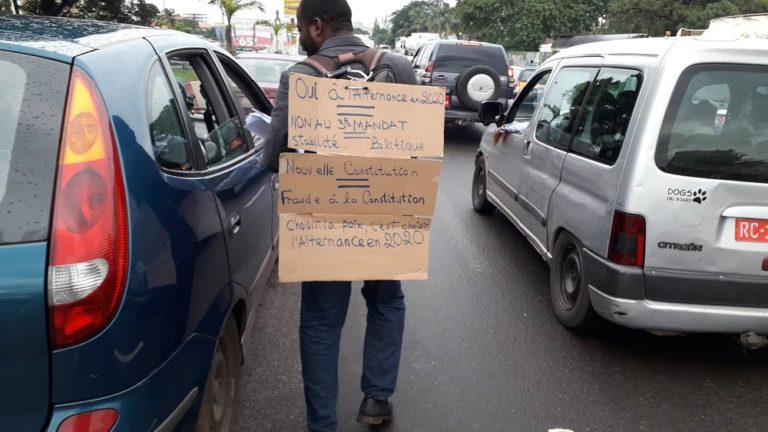 Oui à l'Alternance en 2020
NON AU 3e MANDAT
stabilité Politique
Nouvelle Constitution
=
Fraude à la Constitution
Choisir la paix, c'est choisir
l'Alternance en 2020
DOGS
ON BOARD
CITROËN
RC